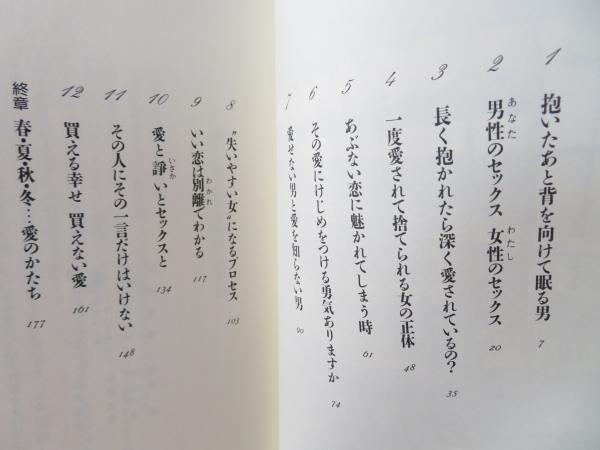 1 抱いたあと背を向けて眠る男 7
2 男性のセックス 女性のセックス 20
あなた わたし
3 長く抱かれたら深く愛されているの? 35
4 一度愛されて捨てられる女の正体 48
5 あぶない恋に魅かれてしまう時 61
6 その愛にけじめをつける勇気ありますか 74
7 愛せない男と愛を知らない男 90
8 “失いやすい女”になるプロセス 103
9 いい恋は別離でわかる 117
わかれ
10 愛と諍いとセックスと 134
いさか
11 その人にその一言だけはいけない 148
12 買える幸せ 買えない愛 161
終章 春・夏・秋・冬…愛のかたち 177